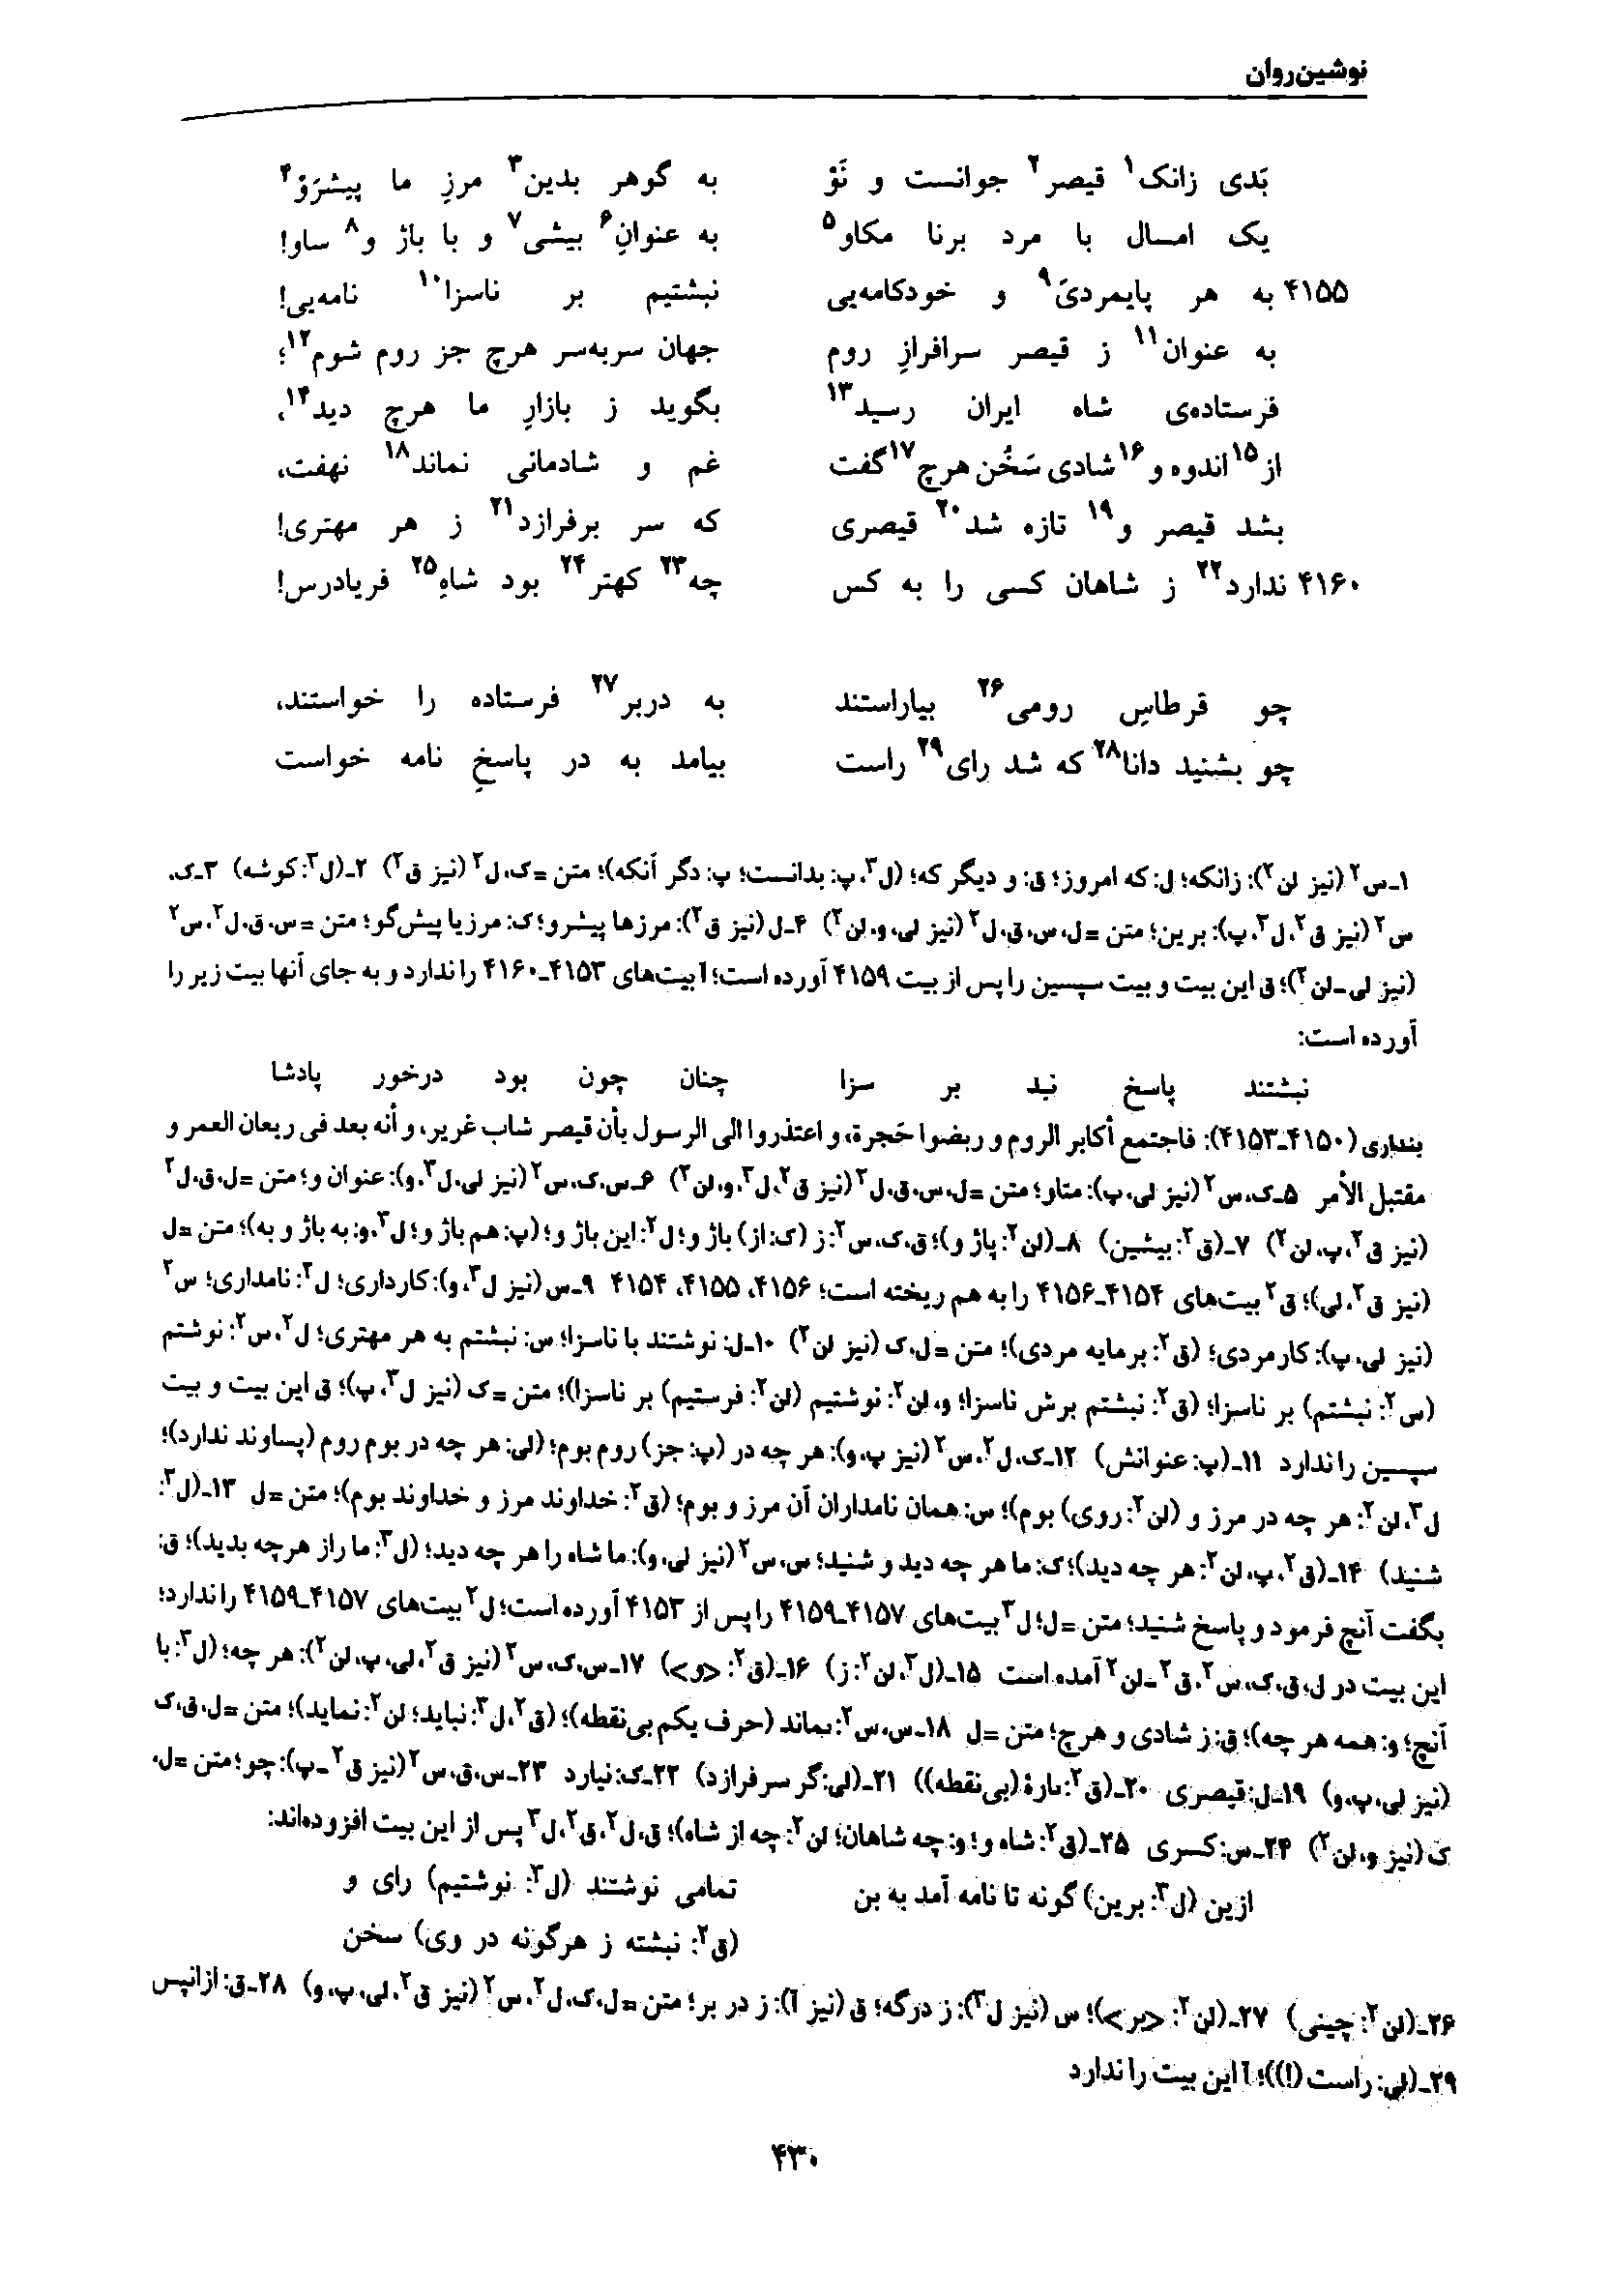 نوشین‌روان
بَدی زانک۱ قیصر۲ جوانست و نَوْ به گوهر بدین۳ مرزِ ما پیشرَوْ۴
یک امسال با مرد برنا مکاو۵ به عنوانِ۶ بیشی۷ و با باژ و۸ ساو!
۴۱۵۵ به هر پایمردیَ۹ و خودکامه‌یی نبشتیم بر ناسزا۱۰ نامه‌یی!
به عنوان۱۱ ز قیصر سرافرازِ روم جهان سربه‌سر هرچ جز روم شوم۱۲؛
فرستاده‌ی شاه ایران رسید۱۳ بگوید ز بازارِ ما هرچ دید۱۴،
از۱۵ اندوه و۱۶ شادی سَخُن هرچ۱۷ گفت غم و شادمانی نماند۱۸ نهفت،
بشد قیصر و۱۹ تازه شد۲۰ قیصری که سر برفرازد۲۱ ز هر مهتری!
۴۱۶۰ ندارد۲۲ ز شاهان کسی را به کس چه۲۳ کهتر۲۴ بود شاهِ۲۵ فریادرس!
چو قرطاسِ رومی۲۶ بیاراستند به دربر۲۷ فرستاده را خواستند،
چو بشنید دانا۲۸ که شد رای۲۹ راست بیامد به در پاسخِ نامه خواست
۱ـ س۲ (نیز لن۲): زانکه؛ ل: که امروز؛ ق: و دیگر که؛ (ل۳، پ: بدانست؛ پ: دگر آنکه)؛ متن = ک، ل۲ (نیز ق۲) ۲ـ (ل۳: کوشه) ۳ـ ک،
س۲ (نیز ق۲، ل۳، پ): برین؛ متن = ل، س، ق، ل۲ (نیز لی، و، لن۲) ۴ـ ل (نیز ق۲): مرزها پیشرو؛ ک: مرز یا پیش‌گو؛ متن = س، ق، ل۲، س۲
(نیز لی ـ لن۲)؛ ق این بیت و بیت سپسین را پس از بیت ۴۱۵۹ آورده است؛ آ بیت‌های ۴۱۵۳ـ۴۱۶۰ را ندارد و به جای آنها بیت زیر را
آورده است:
نبشتند پاسخ نبد بر سزا چنان چون بود درخور پادشا
بنداری (۴۱۵۰ـ۴۱۵۳): فاجتمع أکابر الروم و ربضوا حَجرة، و اعتذروا الی الرسول بأن قیصر شاب غریر، و أنه بعد فی ریعان العمر و
مقتبل الأمر ۵ـ ک، س۲ (نیز لی، پ): متاو؛ متن = ل، س، ق، ل۲ (نیز ق۲، ل۳، و، لن۲) ۶ـ س، ک، س۲ (نیز لی، ل۳، و): عنوان و؛ متن = ل، ق، ل۲
(نیز ق۲، پ، لن۲) ۷ـ (ق۲: بیشین) ۸ـ (لن۲: پاژ و)؛ ق، ک، س۲: ز (ک: از) باژ و؛ ل۲: این باژ و؛ (پ: هم باژ و؛ ل۳، و: به باژ و به)؛ متن = ل
(نیز ق۲، لی)؛ ق۲ بیت‌های ۴۱۵۴ـ۴۱۵۶ را به هم ریخته است؛ ۴۱۵۶، ۴۱۵۵، ۴۱۵۴ ۹ـ س (نیز ل۳، و): کارداری؛ ل۲: نامداری؛ س۲
(نیز لی، پ): کارمردی؛ (ق۲: برمایه مردی)؛ متن = ل، ک (نیز لن۲) ۱۰ـ ل: نوشتند با ناسزا؛ س: نبشتم به هر مهتری؛ ل۲، س۲: نوشتم
(س۲: نبشتم) بر ناسزا؛ (ق۲: نبشتم برش ناسزا؛ و، لن۲: نوشتیم (لن۲: فرستیم) بر ناسزا)؛ متن = ک (نیز ل۳، پ)؛ ق این بیت و بیت
سپسین را ندارد ۱۱ـ (پ: عنوانش) ۱۲ـ ک، ل۲، س۲ (نیز پ، و): هر چه در (پ: جز) روم بوم؛ (لی: هر چه در بوم روم (پساوند ندارد)؛
ل۳، لن۲: هر چه در مرز و (لن۲: روی) بوم)؛ س: همان نامداران آن مرز و بوم؛ (ق۲: خداوند مرز و خداوند بوم)؛ متن = ل ۱۳ـ (ل۳:
شنید) ۱۴ـ (ق۲، پ، لن۲: هر چه دید)؛ ک: ما هر چه دید و شنید؛ س، س۲ (نیز لی، و): ما شاه را هر چه دید؛ (ل۳: ما راز هرچه بدید)؛ ق:
بگفت آنچ فرمود و پاسخ شنید؛ متن = ل؛ ل۳ بیت‌های ۴۱۵۷ـ۴۱۵۹ را پس از ۴۱۵۳ آورده است؛ ل۲ بیت‌های ۴۱۵۷ـ۴۱۵۹ را ندارد؛
این بیت در ل، ق، ک، س۲، ق۲ ـ لن۲ آمده است ۱۵ـ (ل۳، لن۲: ز) ۱۶ـ (ق۲: <و>) ۱۷ـ س، ک، س۲ (نیز ق۲، لی، پ، لن۲): هر چه؛ (ل۳: با
آنچ؛ و: همه هر چه)؛ ق: ز شادی و هرچ؛ متن = ل ۱۸ـ س، س۲: ىماند (حرف یکم بی‌نقطه)؛ (ق۲، ل۳: نباید؛ لن۲: نماید)؛ متن = ل، ق، ک
(نیز لی، پ، و) ۱۹ـ ل: قیصری ۲۰ـ (ق۲: ىارهٔ (بی‌نقطه)) ۲۱ـ (لی: گر سرفرازد) ۲۲ـ ک: نیارد ۲۳ـ س، ق، س۲ (نیز ق۲ ـ پ): چو؛ متن = ل،
ک (نیز و، لن۲) ۲۴ـ س: کسری ۲۵ـ (ق۲: شاه و؛ و: چه شاهان؛ لن۲: چه از شاه)؛ ق، ل۲، ق۲، ل۳ پس از این بیت افزوده‌اند:
ازین (ل۳: برین) گونه تا نامه آمد به بن تمامی نوشتند (ل۳: نوشتیم) رای و
(ق۲: نبشته ز هرگونه در وی) سخن
۲۶ـ (لن۲: چینی) ۲۷ـ (لن۲: <بر>)؛ س (نیز ل۳): ز درگه؛ ق (نیز آ): ز در بر؛ متن = ل، ک، ل۲، س۲ (نیز ق۲، لی، پ، و) ۲۸ـ ق: ازانپس
۲۹ـ (لی: راست (!))؛ آ این بیت را ندارد
۴۳۰